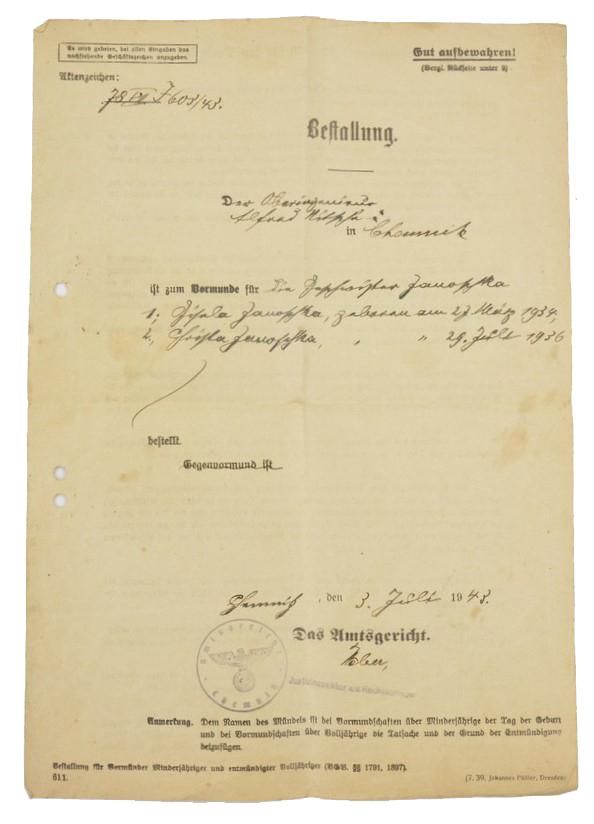 Es wird gebeten, bei allen Eingaben das
nachstehende Geschäftszeichen anzugeben.
Gut aufbewahren!
(Vergl. Rückseite unter 9)
Aktenzeichen:
603/43.
Bestallung.
Der Oberingenieur
Alfred
in Chemnitz
ist zum Vormunde für die Geschwister Janoschka
1., Gisela Janoschka, geboren am 27. März 1934,
2., Christa Janoschka, " " 29. Juli 1936
bestellt.
Gegenvormund ist
Chemnitz, den 3. Juli 1943.
Das Amtsgericht.
Amtsgericht
Chemnitz
Anmerkung. Dem Namen des Mündels ist bei Vormundschaften über Minderjährige der Tag der Geburt
und bei Vormundschaften über Volljährige die Tatsache und der Grund der Entmündigung
beizufügen.
Bestallung für Vormünder Minderjähriger und entmündigter Volljähriger (BGB. §§ 1791, 1897).
611.
(7. 39. Johannes Päßler, Dresden)